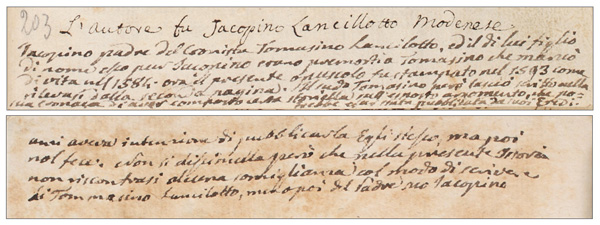 203
L'autore fu Jacopino Lancillotto Modenese
Jacopino padre del Cronista Tomasino Lancilotto, ed il di lui figlio
di nome esso pur Jacopino erano premorti a Tomasino che mancò
di vita nel 1554. ora il presente opuscolo fu stampato nel 1593 come
rilevasi dalla seconda pagina. Il Tomasino però lasciò scritto nella
sua Cronaca di aver composto una sull'esposto argomento, che
stata pubblicata da suoi Eredi.
anni aveva intenzione di pubblicarla Egli stesso, ma poi
nol fece. Non si dissimula però che nella presente Istoria
non riscontrasi alcuna somiglianza col modo di scrivere
di Tommasino Lancilotto, ma o poi del Padre suo Jacopino